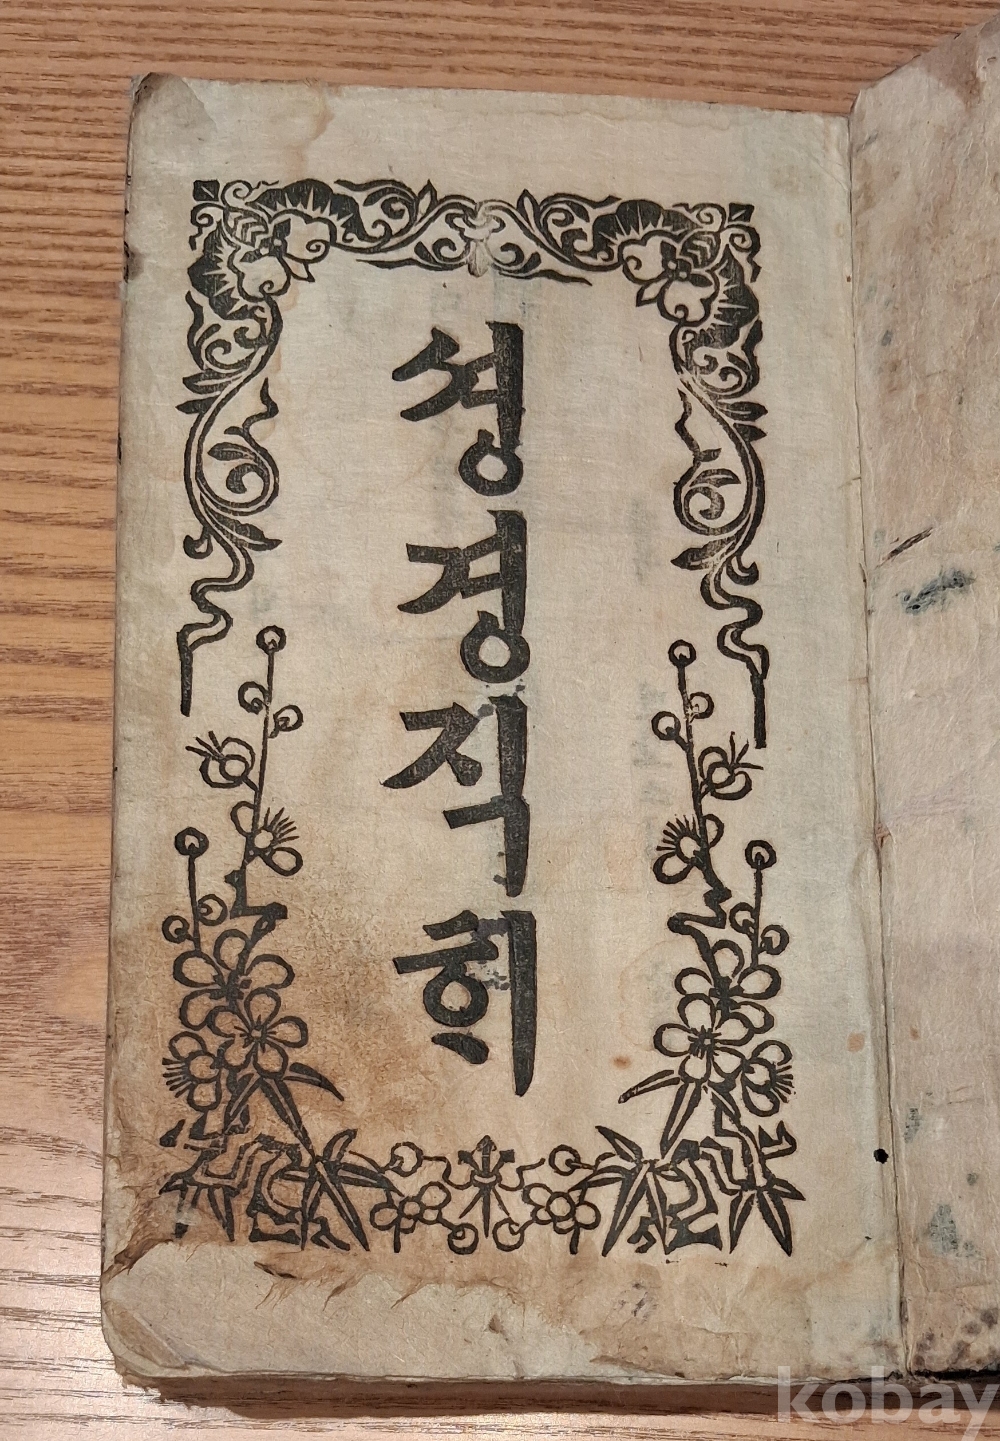 셩경직ᄒᆡ
kobay